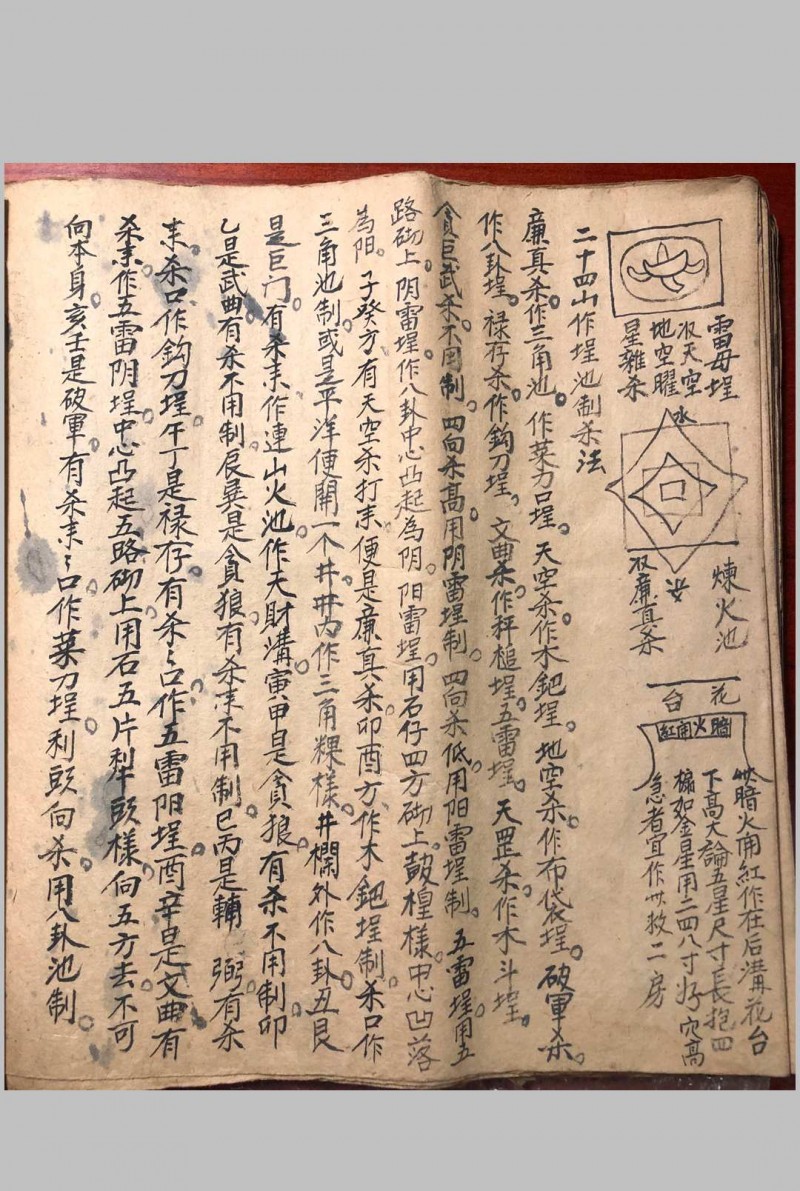 雷毋埕
収天空
地空曜
星雜杀
水
煉火池
収廉真杀
花台
暗火甬紅
暗火甬紅作在后溝花台
下高大論五星尺寸長抱四
檺如金星用二四八寸好穴高
急者宜作此救二房
二十四山作埕池制杀法
廉真杀作三角池。作菜刀口埕。天空杀作木鈀埕。地空杀作布袋埕。破軍杀。
作八卦埕。禄存杀。作鈎刀埕。文曲杀作秤槌埕。五雷埕。天罡杀。作木斗埕。
貪巨武杀。不用制。四向杀高。用阴雷埕制。四向杀低。用阳雷埕制。五雷埕用五
路砌上。阴雷埕。作八卦中心凸起為阴。阳雷埕。用石仔四方砌上。鼓樘樣。中心凹落
為阳。子癸方有天空杀打耒。便是廉真杀。卯酉方作木鈀埕制。杀口作
三角池制。或是平洋便開一个井。井内作三角粿樣。井欄外作八卦。丑艮
是巨门。有杀耒。作連山火池。作天財溝。寅甲是貪狼。有杀不用制。卯
乙是武曲。有杀不用制。辰巽是貪狼。有杀耒不用制。巳丙是輔弼。有杀
耒。杀口作鈎刀埕。午丁是禄存。有杀々口作五雷阳埕。酉辛是文曲。有
杀耒。作五雷阴埕。中心凸起五路砌上。用石五片犁頭樣。向五方去。不可
向本身。亥壬是破軍。有杀耒々口作菜刀埕。利頭向杀。用八卦池制。